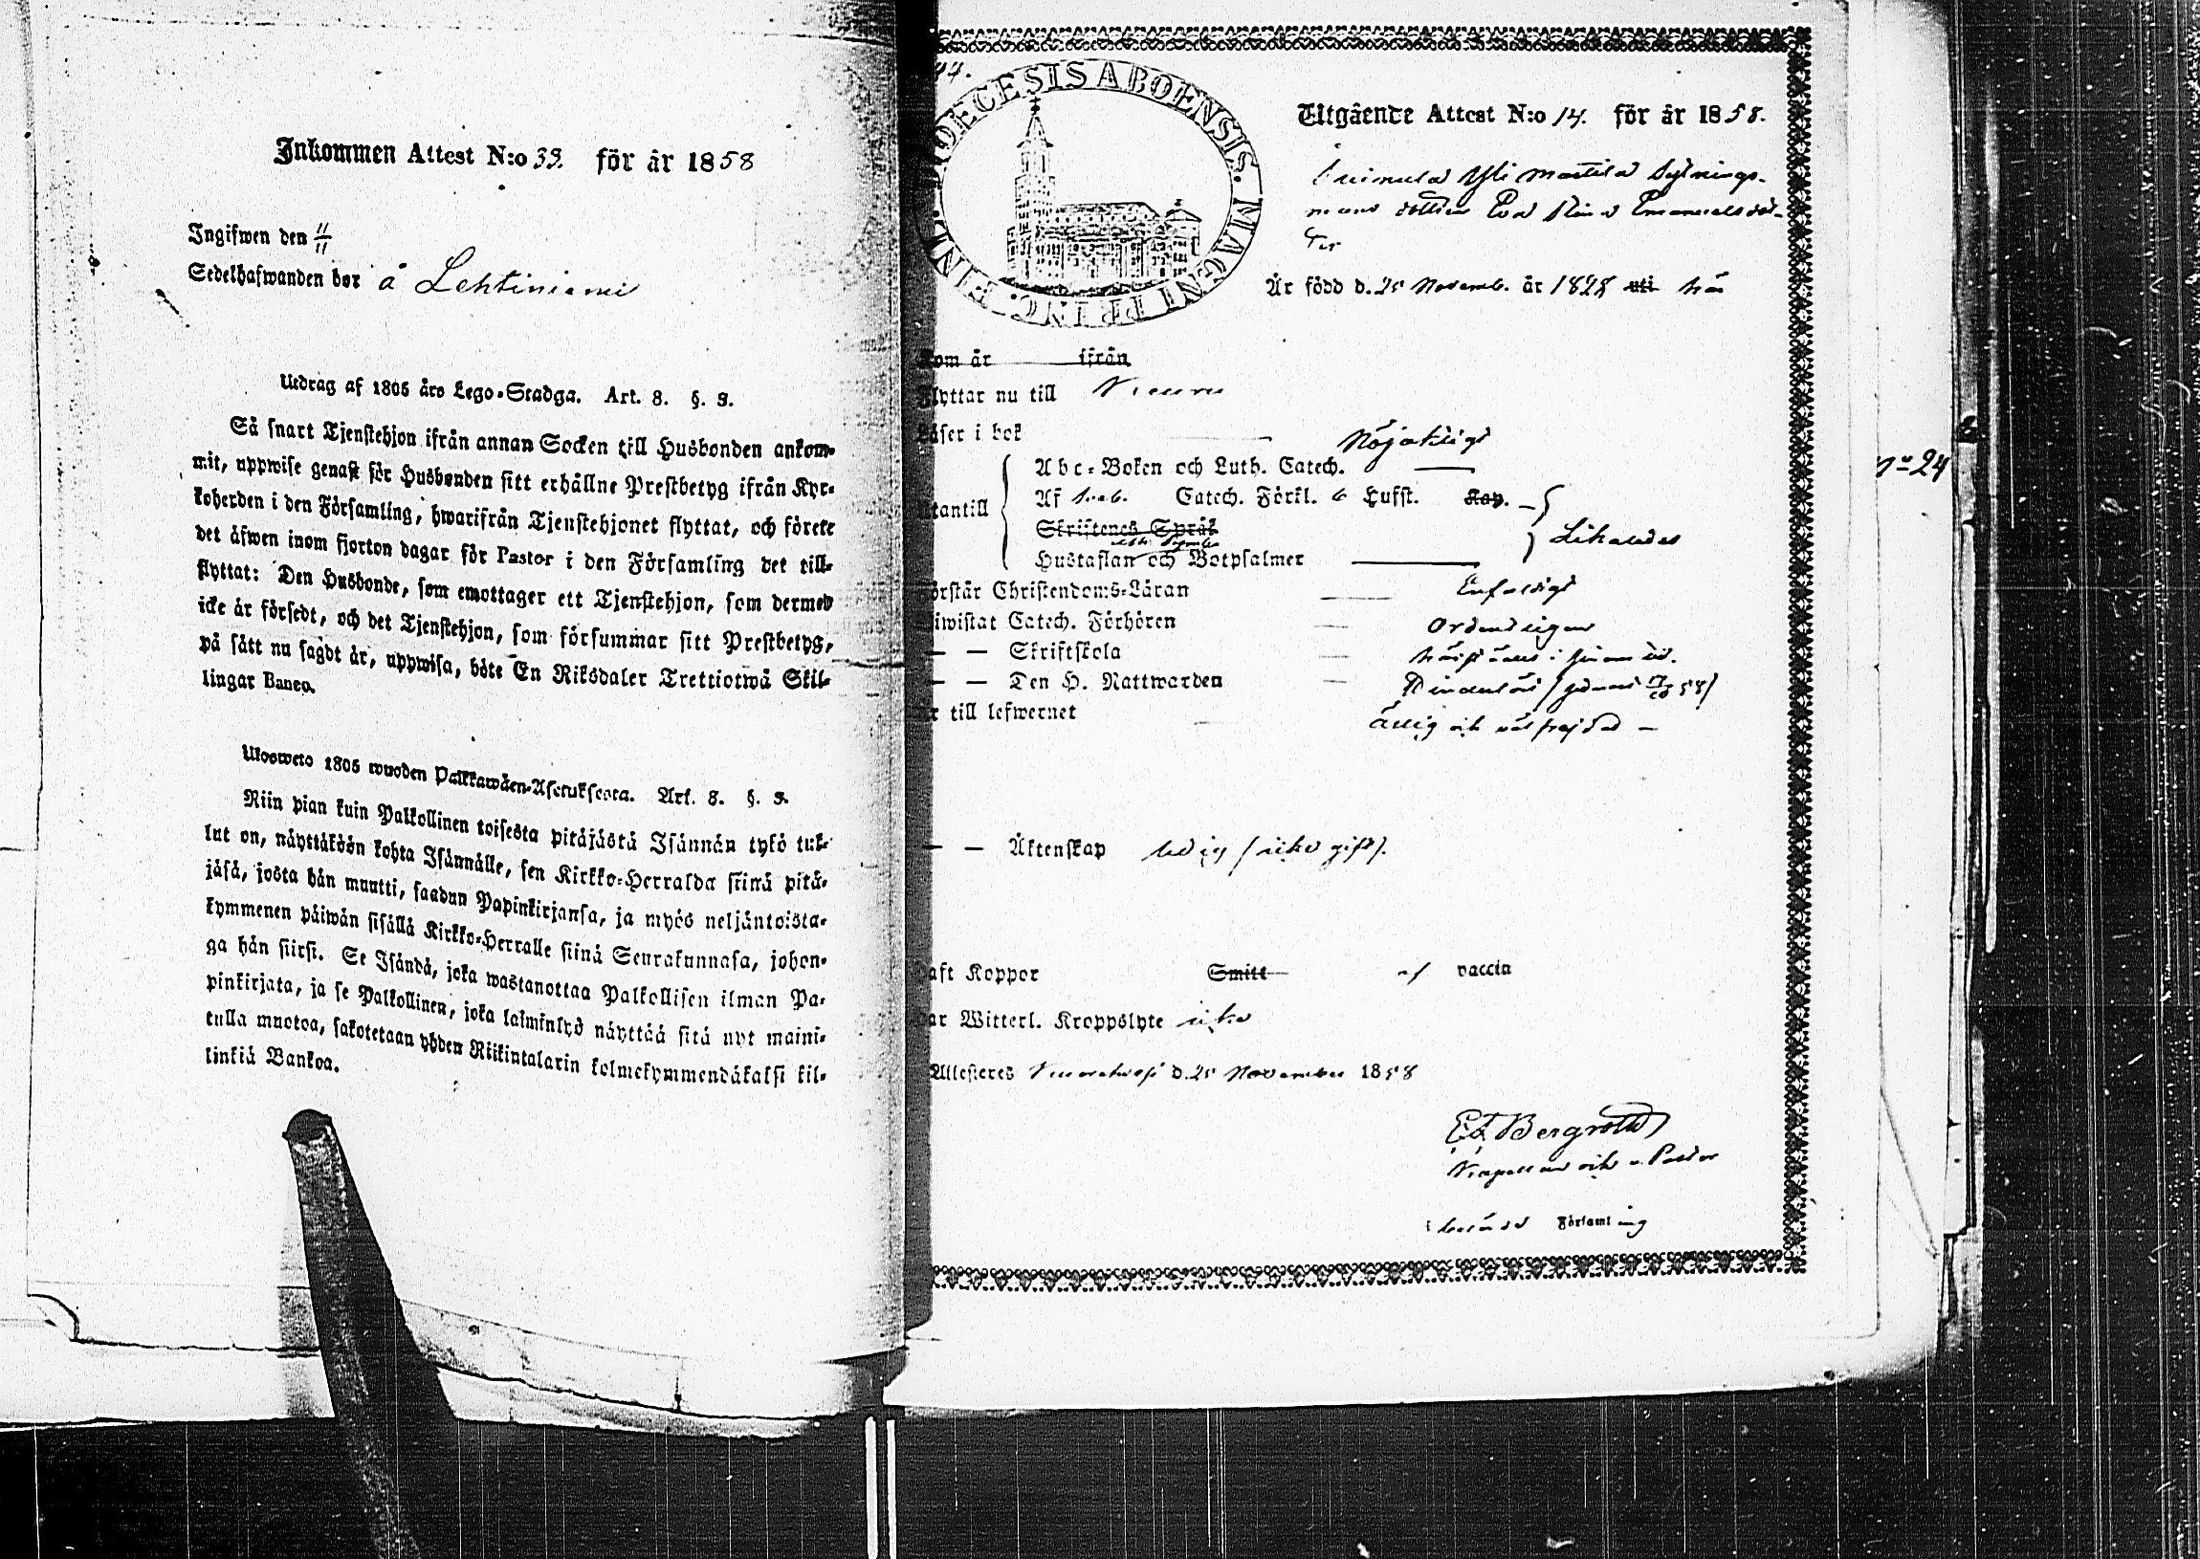 Inkommen Attest N:o 33. för år 1858
Ingifwen den 11/11
Sedelhafwanden bor å Lehtiniemi
Utdrag af 1805 års Lego-Stadga. Art. 8. §. 3.
Så snart Tjenstehjon ifrån annan Socken till Husbonden ankom-
mit, uppwise genast för Husbonden sitt erhållne Prestbetyg ifrån Kyr-
koherden i den Församling, hwarifrån Tjenstehjonet flyttat, och förete
det äfwen inom fjorton dagar för Pastor i den Församling det till-
flyttat: Den Husbonde, som emottager ett Tjenstehjon, som dermed
icke är försedt, och det Tjenstehjon, som försummar sitt Prestbetyg,
på sätt nu sagdt är, uppwisa, böte En Riksdaler Trettiotwå Skil-
lingar Banco.
Ulosweto 1805 wuoden Palkkawäen-Asetuksesta. Art. 8. §. 3.
Niin pian kuin Palkollinen toisesta pitäjästä Isännän tykö tul-
lut on, näyttäköön kohta Isännälle, sen Kirkko-Herralda siinä pitä-
jäsä, josta hän muutti, saadun Papinkirjansa, ja myös neljäntoista-
kymmenen päiwän sisällä Kirkko-Herralle siinä Seurakunnasa, johon-
ga hän siirsi. Se Isändä, joka wastanottaa Palkollisen ilman Pa-
pinkirjata, ja se Palkollinen, joka laiminlyö näyttää sitä nyt maini-
tulla muotoa, sakotetaan yhden Riikintalarin kolmekymmendäkaksi kil-
linkiä Bankoa.
44.
DIOECESIS ABOENSIS. MAGNI PRINC. FINL.
Utgående Attest N:o 14. för år 1858.
Yli Marttila Sytnings-
mans dottren Eva Stina Emanuelsdot-
ter
Är född d. 25 Novemb. år 1828 uti här
Kom år ifrån
Flyttar nu till
Läser i bok Nöjaktligt
Abc-Boken och Luth. Catech.
Utantill Af Catech. Förkl. Hufst. Kap.
Skriftenes Språk
Hustaflan och Botpsalmer Likaledes
Förstår Christendoms-Läran Enfaldigt
Biwistat Catech. Förhören Ordentligen
— — Skriftskola
— — Den H. Nattwarden
Är till lefwernet Ärlig och välfrejdad —
— — Äktenskap ledig (icke gift).
Haft Koppor Smitt af vaccin
Har Witterl. Kroppslyte icke
Attesteras d. 25 November 1858
Bergroth
Kapellan och v. Pastor
i Församling
No 24